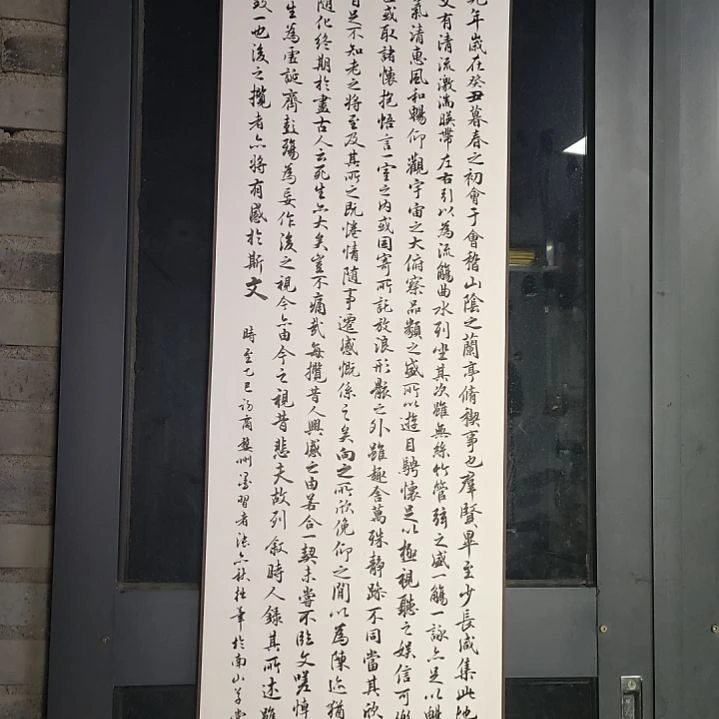 年歲在癸丑暮春之初會于會稽山陰之蘭亭脩禊事也羣賢畢至少長咸集此地
又有清流激湍暎帶左右引以為流觴曲水列坐其次雖無絲竹管弦之盛一觴一詠亦足以暢
氣清惠風和暢仰觀宇宙之大俯察品類之盛所以遊目騁懷足以極視聽之娛信可樂
或取諸懷抱悟言一室之內或因寄所託放浪形骸之外雖趣舍萬殊靜躁不同當其欣
足不知老之將至及其所之既惓情隨事遷感慨係之矣向之所欣俛仰之間以為陳迹猶
隨化終期於盡古人云死生亦大矣豈不痛哉每攬昔人興感之由若合一契未嘗不臨文嗟悼
生為虛誕齊彭殤為妄作後之視今亦由今之視昔悲夫故列敘時人錄其所述雖
致一也後之攬者亦將有感於斯文
時至乙巳 習者 於南山